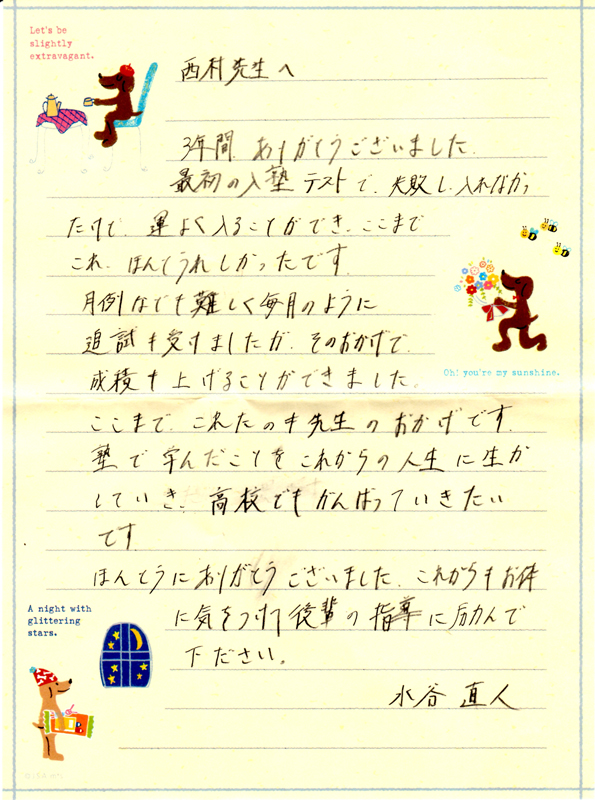 Let's be
slightly
extravagant.
西村先生へ
3年間 ありがとうございました.
最初の入塾テストで、失敗し入れなかっ
たけど、運よく入ることができ、ここまで
これ、ほんとうれしかったです.
月例なども難しく毎月のように
追試も受けましたが、そのおかげで、
成積も上げることができました.
Oh! you're my sunshine.
ここまで、これたのも先生のおかげです.
塾で学んだことをこれからの人生に生か
していき、高校でもがんばっていきたい
です.
ほんとうにありがとうございました. これからもお体
に気をつけて後輩の指導に励んで
下ださい。
A night with
glittering
stars.
水谷 直人